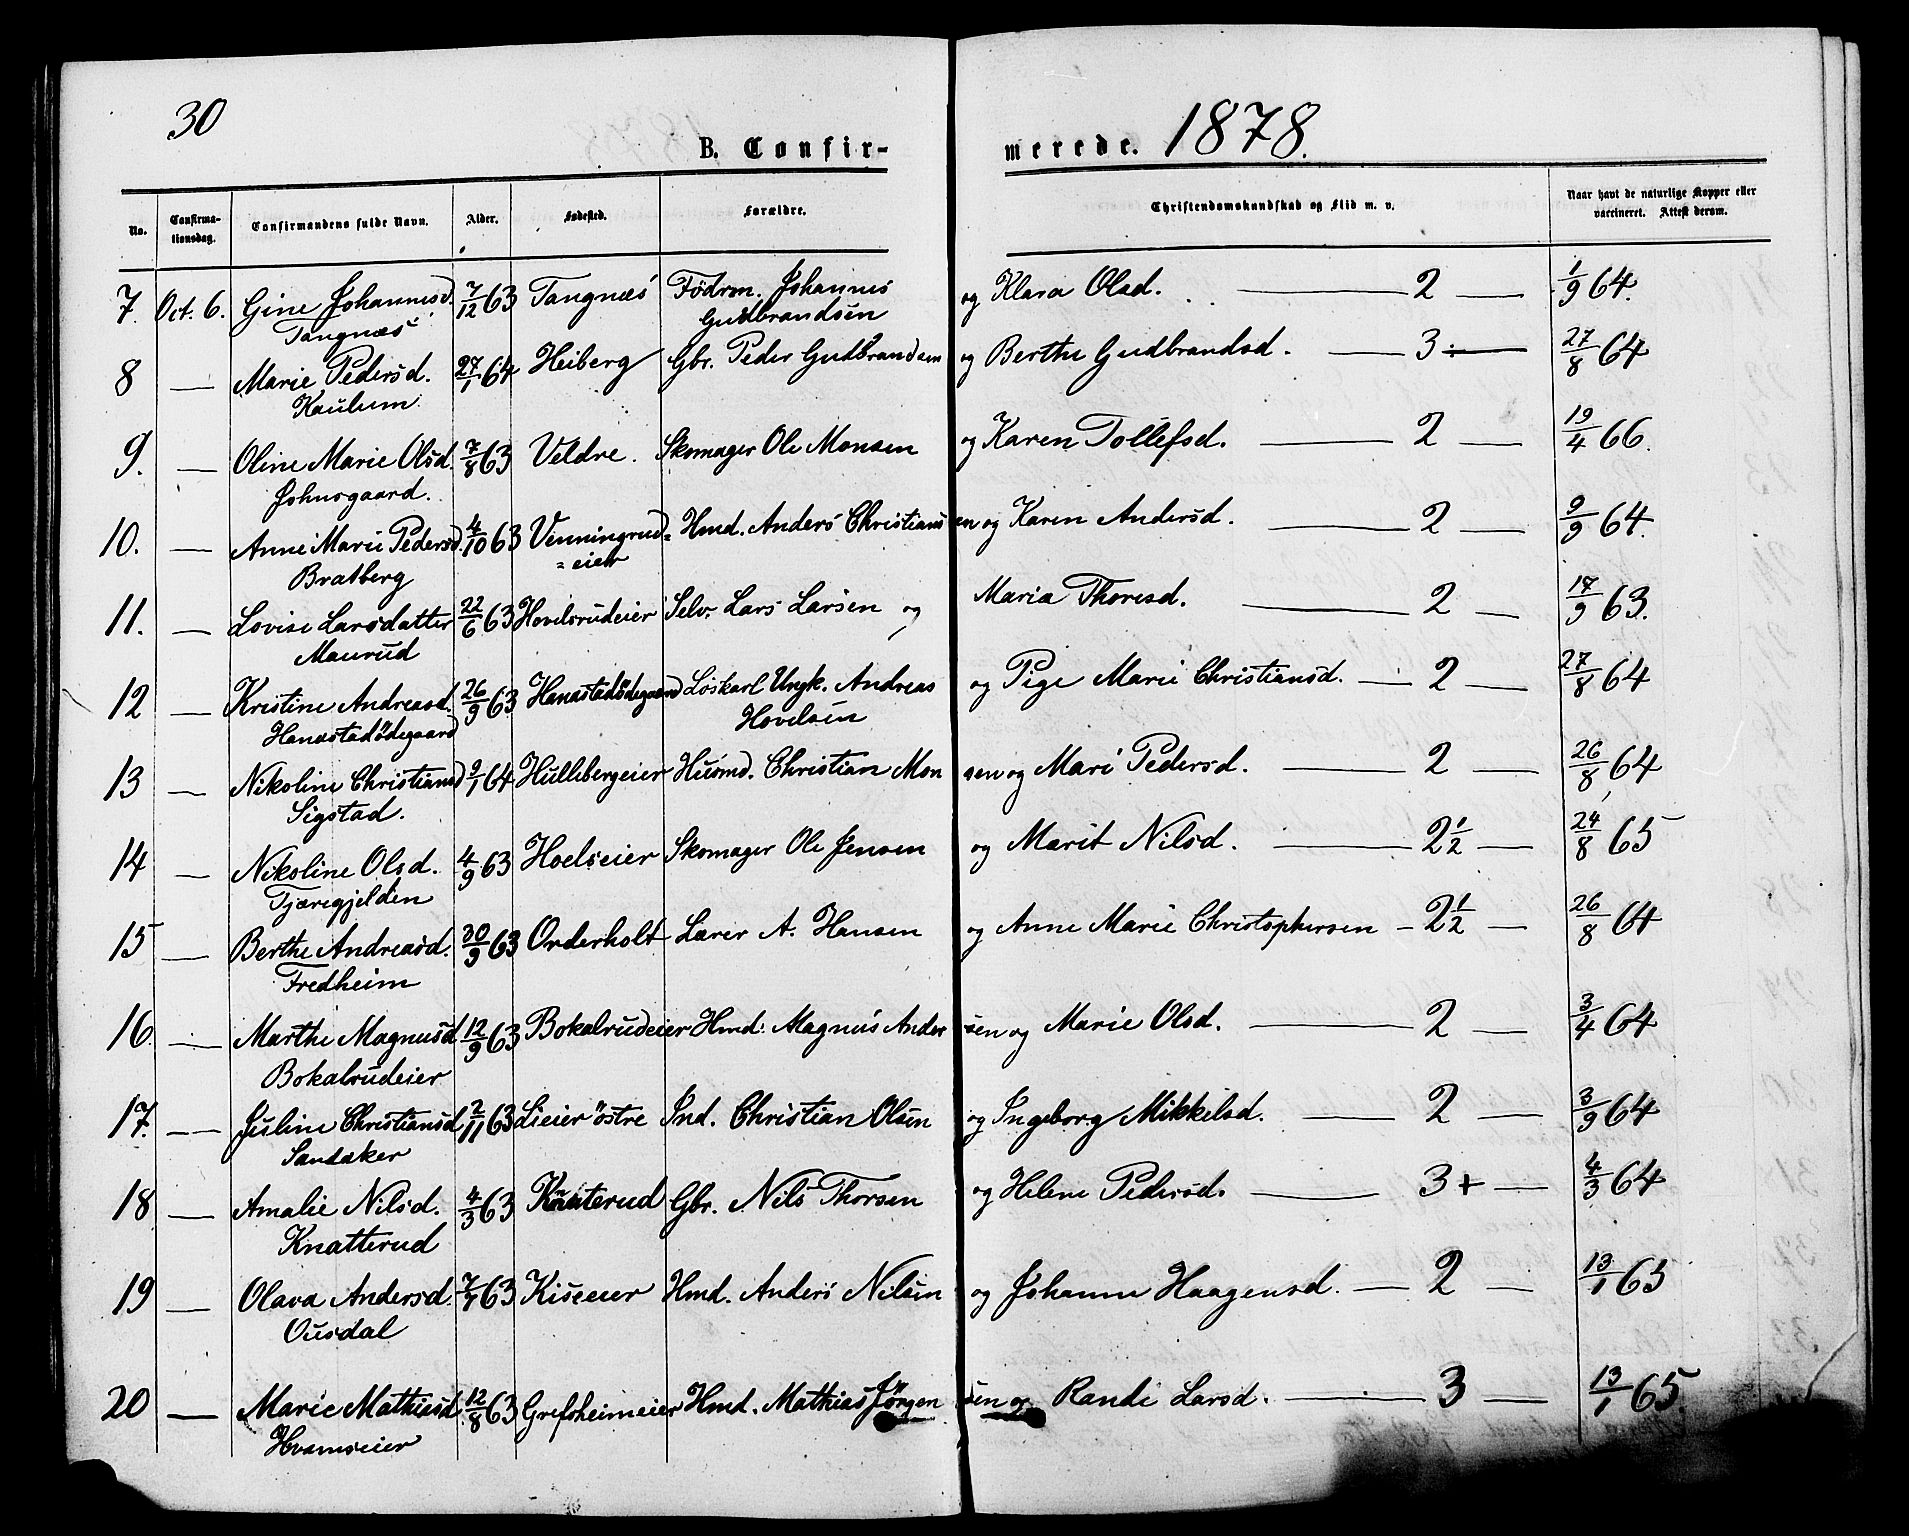 30
B. Confirmerede. 1878.
No. Confirmationsdag. Confirmandens fulde Navn. Alder. Fødested. Forældre. Christendomskundskab og Flid m. v. Naar havt de naturlige Kopper eller vaccineret. Attest derom.
7. Oct. 6. Gine Johannesd. 7/12 63 Tangnæs Fødrm. Johannes og Klara Olsd. — 2 — 1/9 64.
Tangnæs Gudbrandsen
8 — Marie Pedersd. 27/1 64 Heiberg Gbr. Peder Gudbrandsen og Berthe Gudbrandsd. — 3 ÷ — 27/8 64
Kaulum
9. — Oline Marie Olsd. 7/8 63 Veldre. Skomager Ole Monsen og Karen Tollefsd. — 2 — 19/4 66.
Johnsgaard.
10. — Anne Marie Pedersd. 4/10 63 Venningrud= Hmd. Anders Christiansen og Karen Andersd. — 2 — 9/9 64.
Bratberg =eier
11. — Lovise Larsdatter 22/6 63 Hovelsrudeier Selv. Lars Larsen og Maria Thoresd. — 2 — 17/9 63.
Maurud
12 — Kristine Andreasd. 26/9 63 Hanestadødegaard Løskarl Ungk. Andreas og Pige Marie Christiansd. — 2 — 27/8 64
Hanestadødegaard Hovelsen
13 — Nikoline Christiansd 9/1 64 Hullebergeier Husmd. Christian Monsen og Mari Pedersd. — 2 — 26/8 64
Sigstad.
14 — Nikoline Olsd. 4/9 63 Hoelseier Skomager Ole Jensen og Marit Nilsd. — 2 1/2 — 24/8 65
Tjæregjelden
15 — Berthe Andreasd. 30/9 63 Orderholt Lærer A. Hansen og Anne Marie Christophersen — 2 1/2 — 26/8 64
Fredheim
16 — Marthe Magnusd. 12/9 63 Bokalrudeier Hmd. Magnus Andersen og Marie Olsd. — 2 — 3/4 64
Bokalrudeier
17. — Juline Christiansd. 2/11 63 Lieier østre Ind. Christian Olsen og Ingeborg Mikkelsd. — 2 — 3/9 64
Sandaker
18 — Amalie Nilsd. 4/3 63 Knatterud Gbr. Nils Thorsen og Helene Pedersd. — 3 + — 4/3 64
Knatterud
19 — Olava Andersd. 63 Kiseeier Hmd. Anders Nilsen og Johanne Haagensd. — 2 — 13/1 65
Ousdal
20 — Marie Mathiasd 12/8 63 Grefsheimeier Hmd. Mathias Jørgensen og Randi Larsd. — 3 — 13/1 65.
Hvamseier